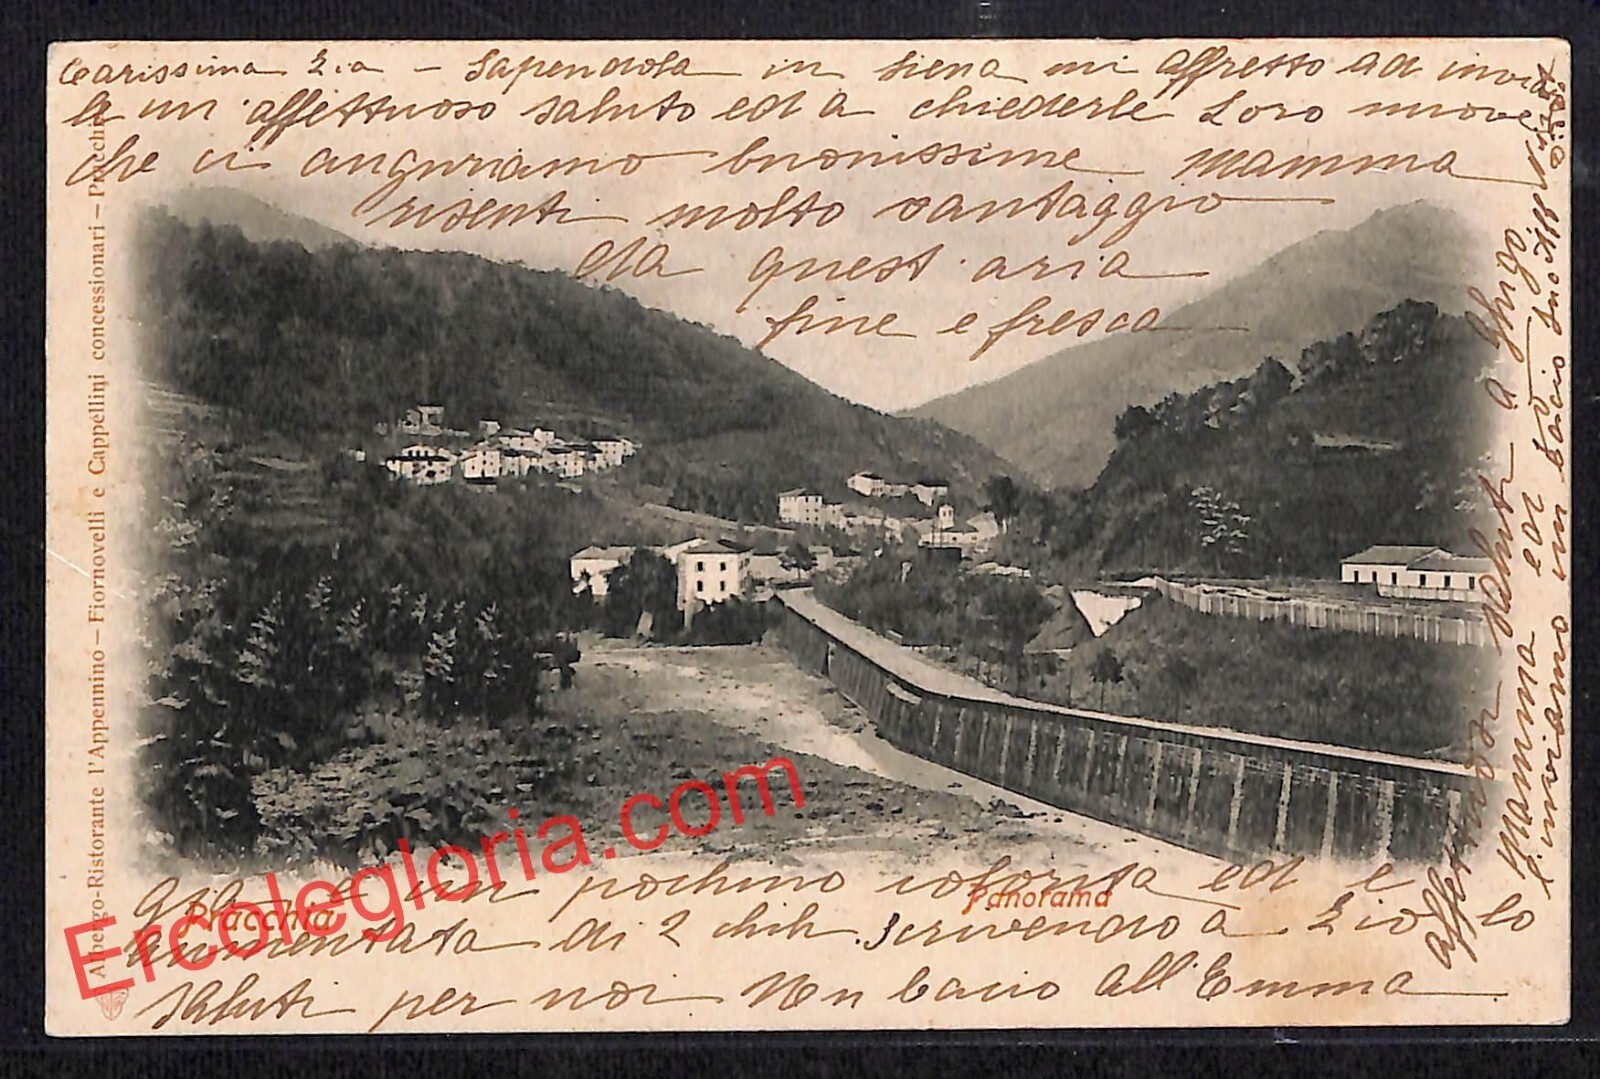 Carissima Zia - Sapendola in Siena mi affretto ad invia
le un affettuoso saluto ed a chiederle Loro nuove
che vi anguriamo buonissime mamma
risenti molto vantaggio
da quest'aria
fine e fresca
Albergo-Ristorante l'Appennino - Fiornovelli e Cappellini concessionari - Pracchia
Pracchia
Panorama
Già è un pochino colorita ed è
aumentata di 2 chili. Scrivendo a Zio lo
saluti per noi Un bacio all'Emma
affettuosi saluti a Ghigo
mamma ed io
inviamo un bacio
Ercolegloria.com